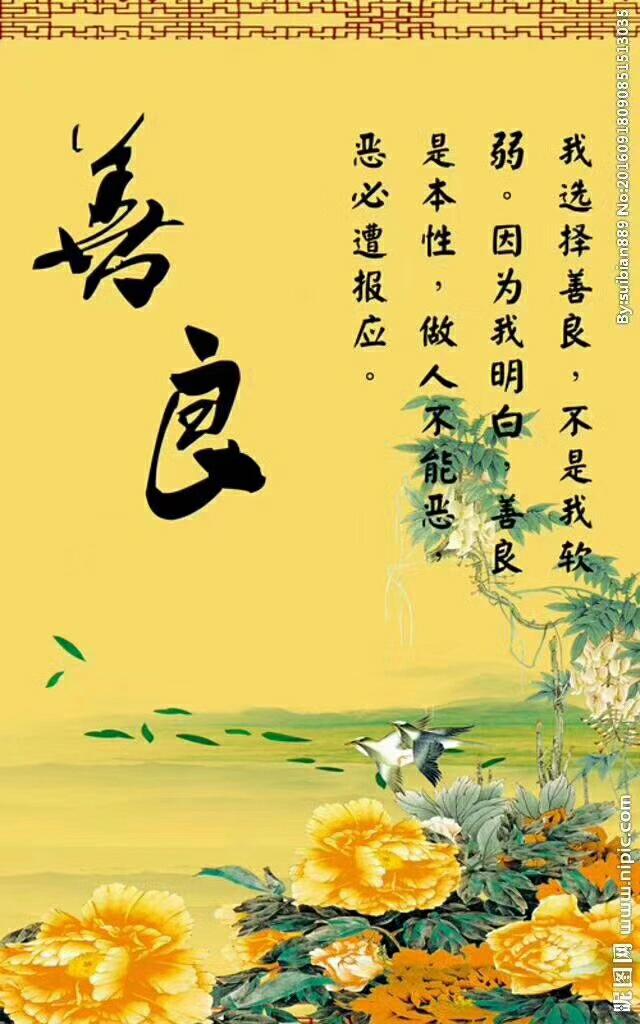 善良
我选择善良，不是我软
弱。因为我明白，善良
是本性，做人不能恶，
恶必遭报应。
By:suibian889 No:20160918090851513035
昵图网 www.nipic.com